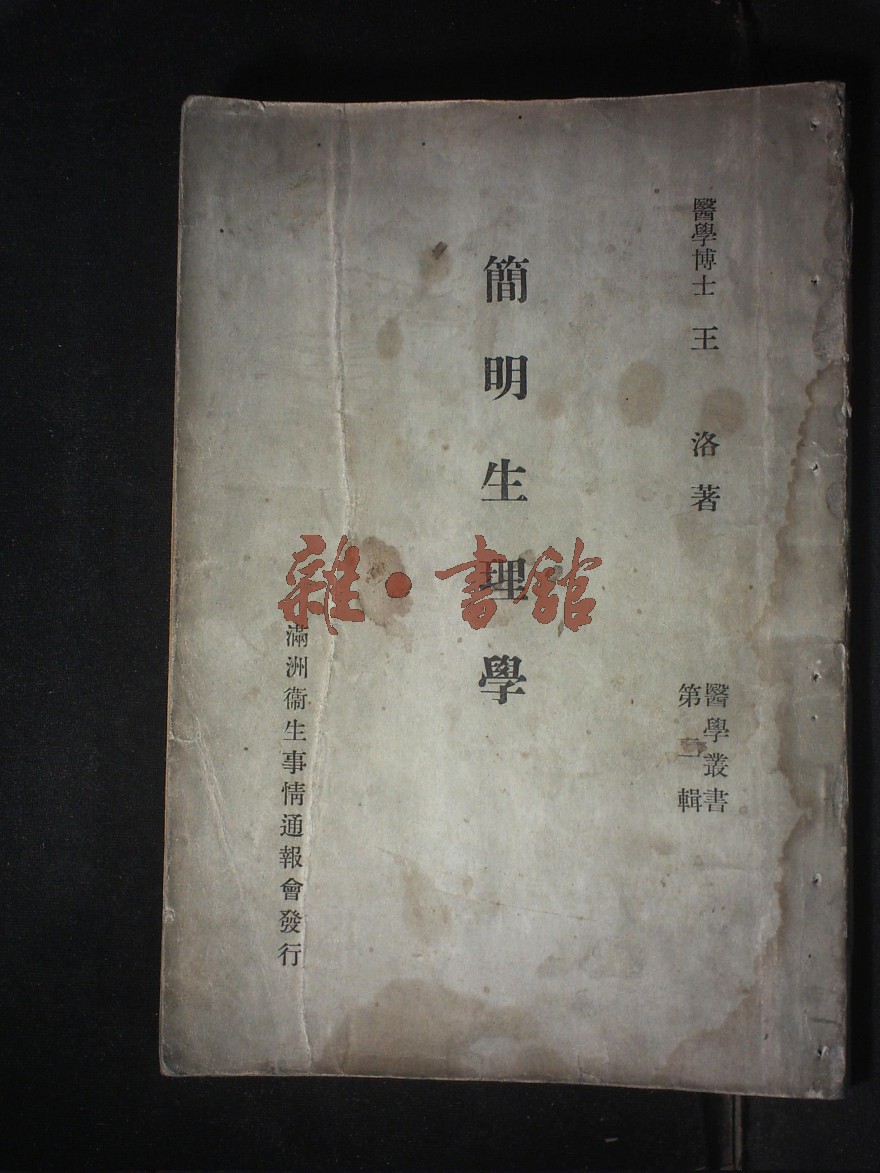 醫學博士 王 洛 著
醫學叢書
第一輯
簡明生理學
滿洲衞生事情通報會發行
雜·書館